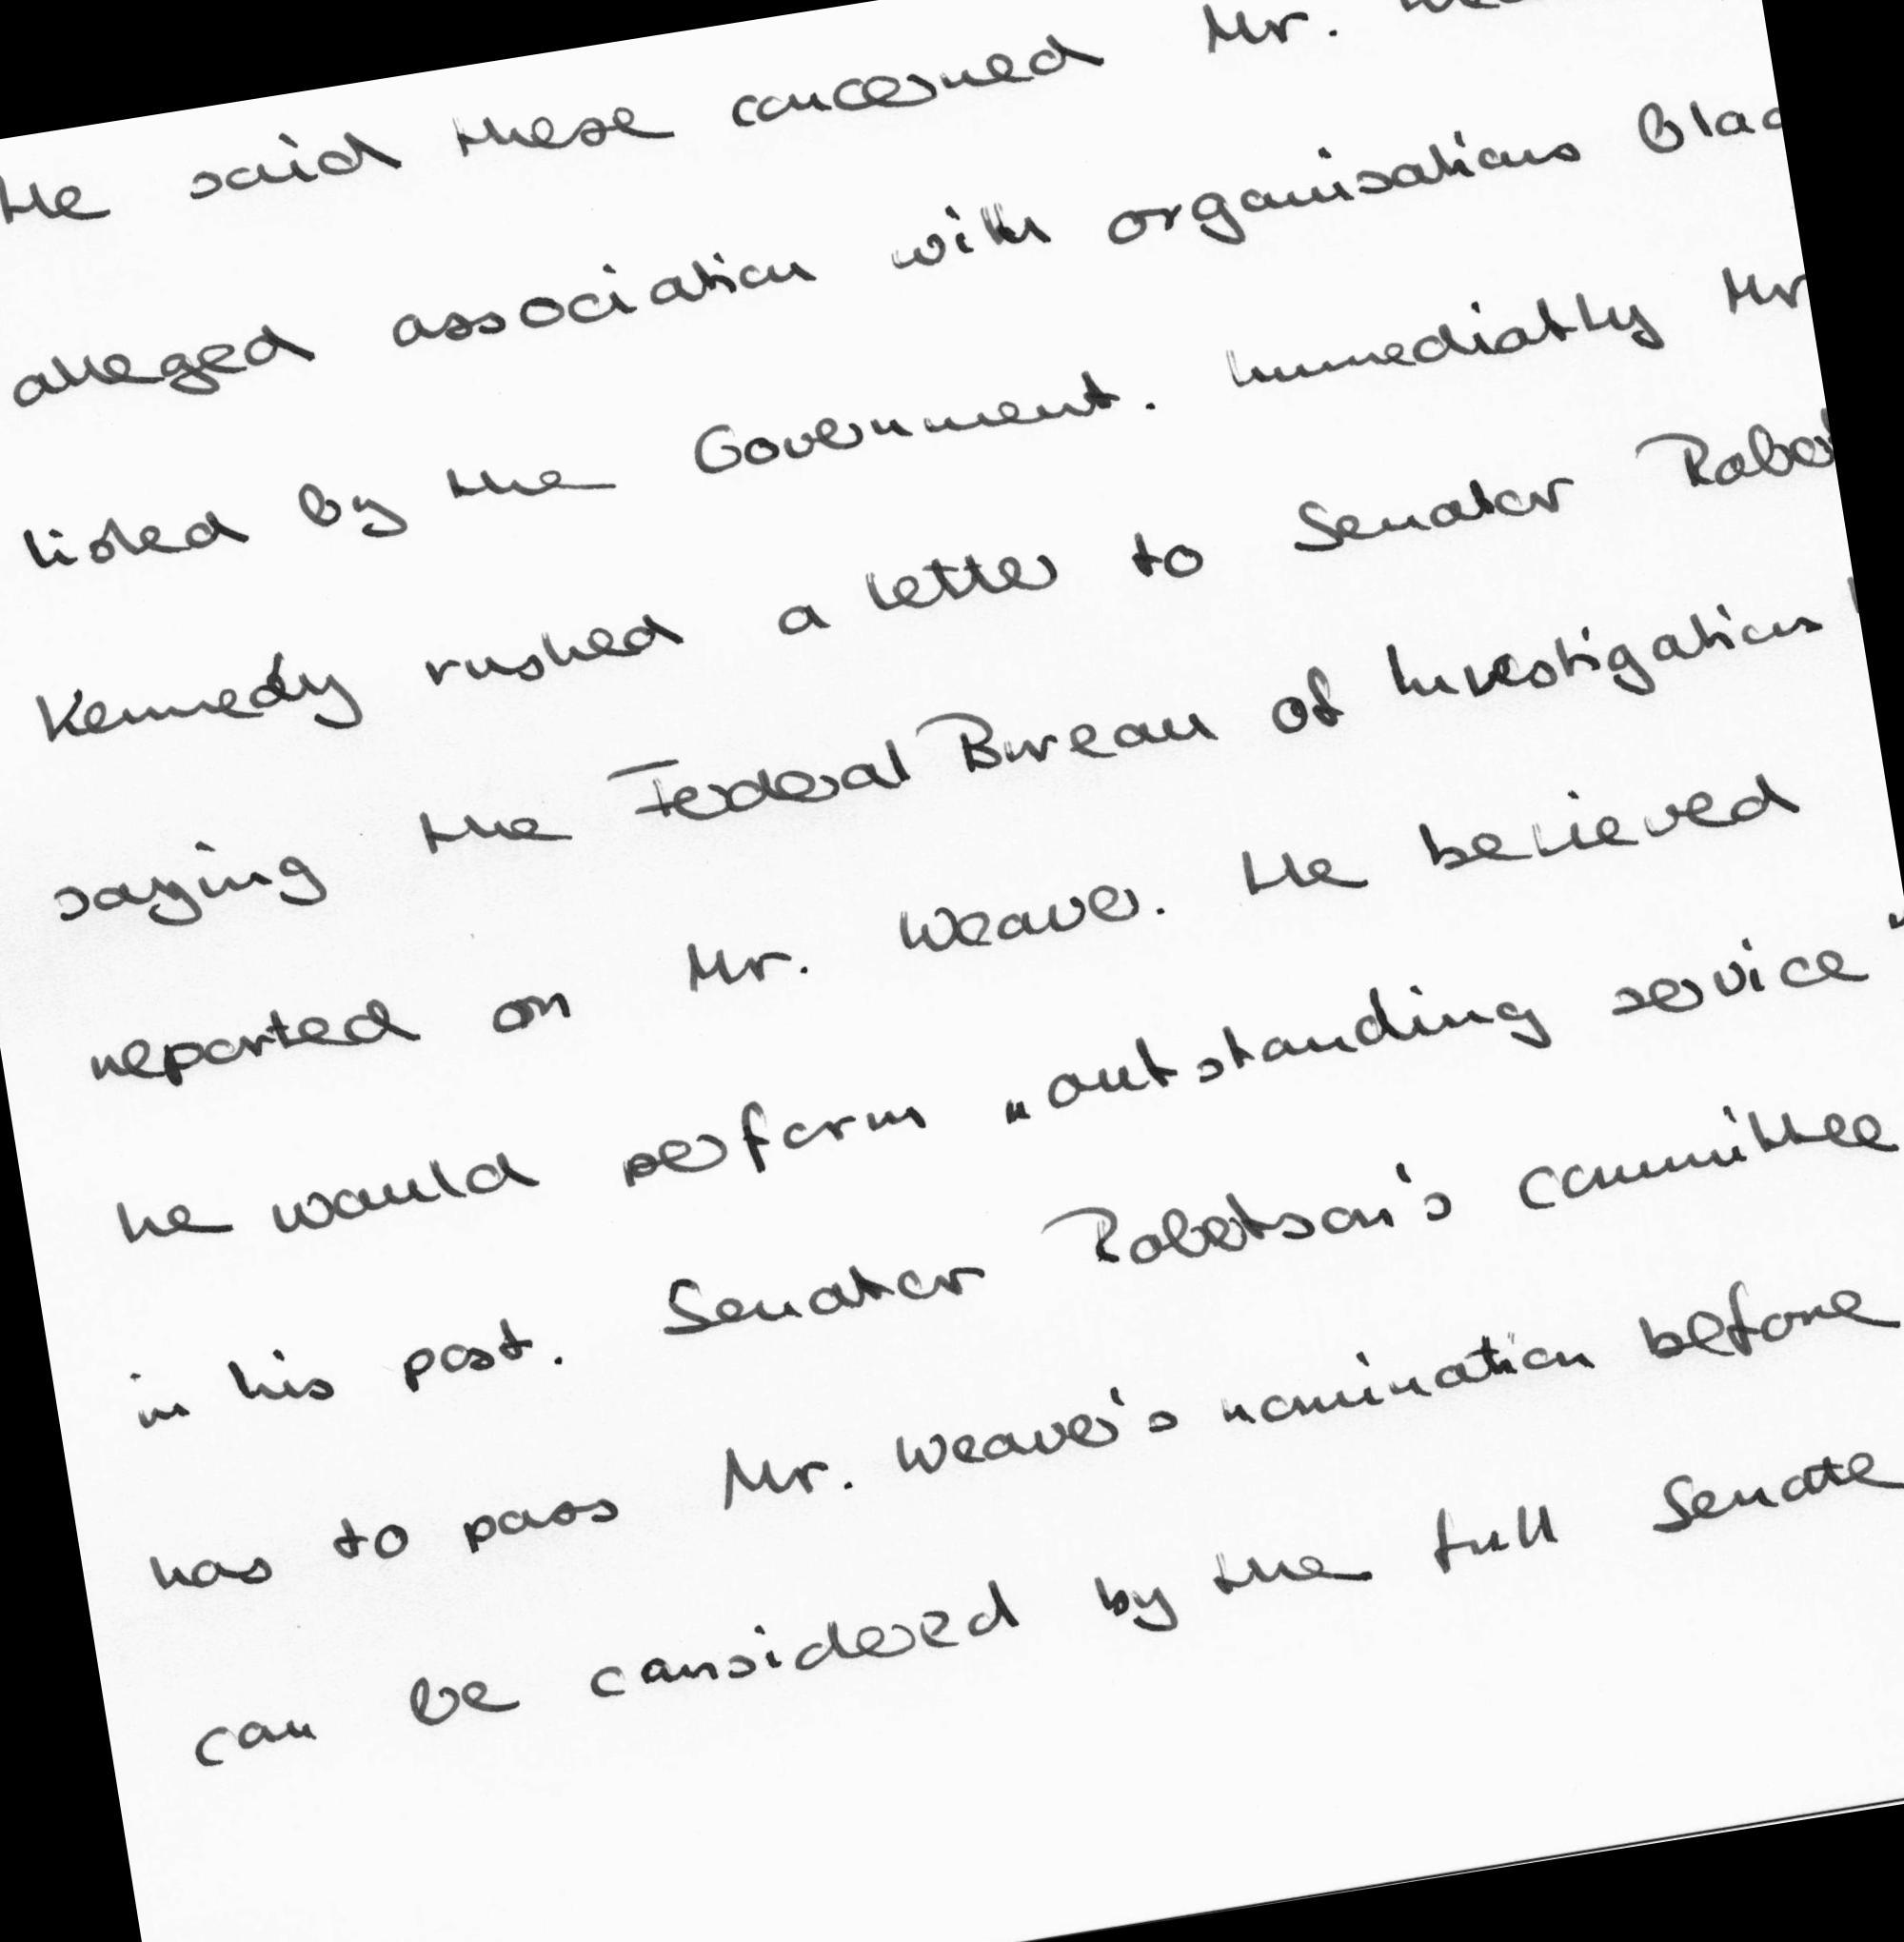 He said these concerned Mr.
alleged association with organisations
listed by the Government. Immediatly Mr
Kennedy rushed a letter to Senator
saying the Federal Bureau of Investigation
reported on Mr. Weaver. He believed
he would perform "outstanding service"
in his post. Senator Robetson's committee
has to pass Mr. Weaver's nomination before
can be considered by the full Senate